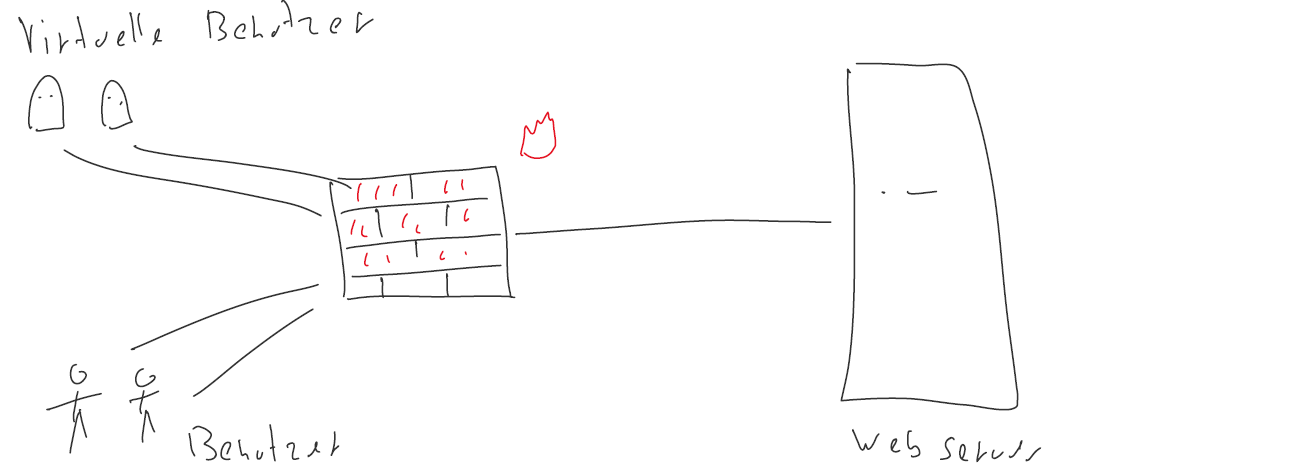 Virtuelle Benutzer
Benutzer
Web server